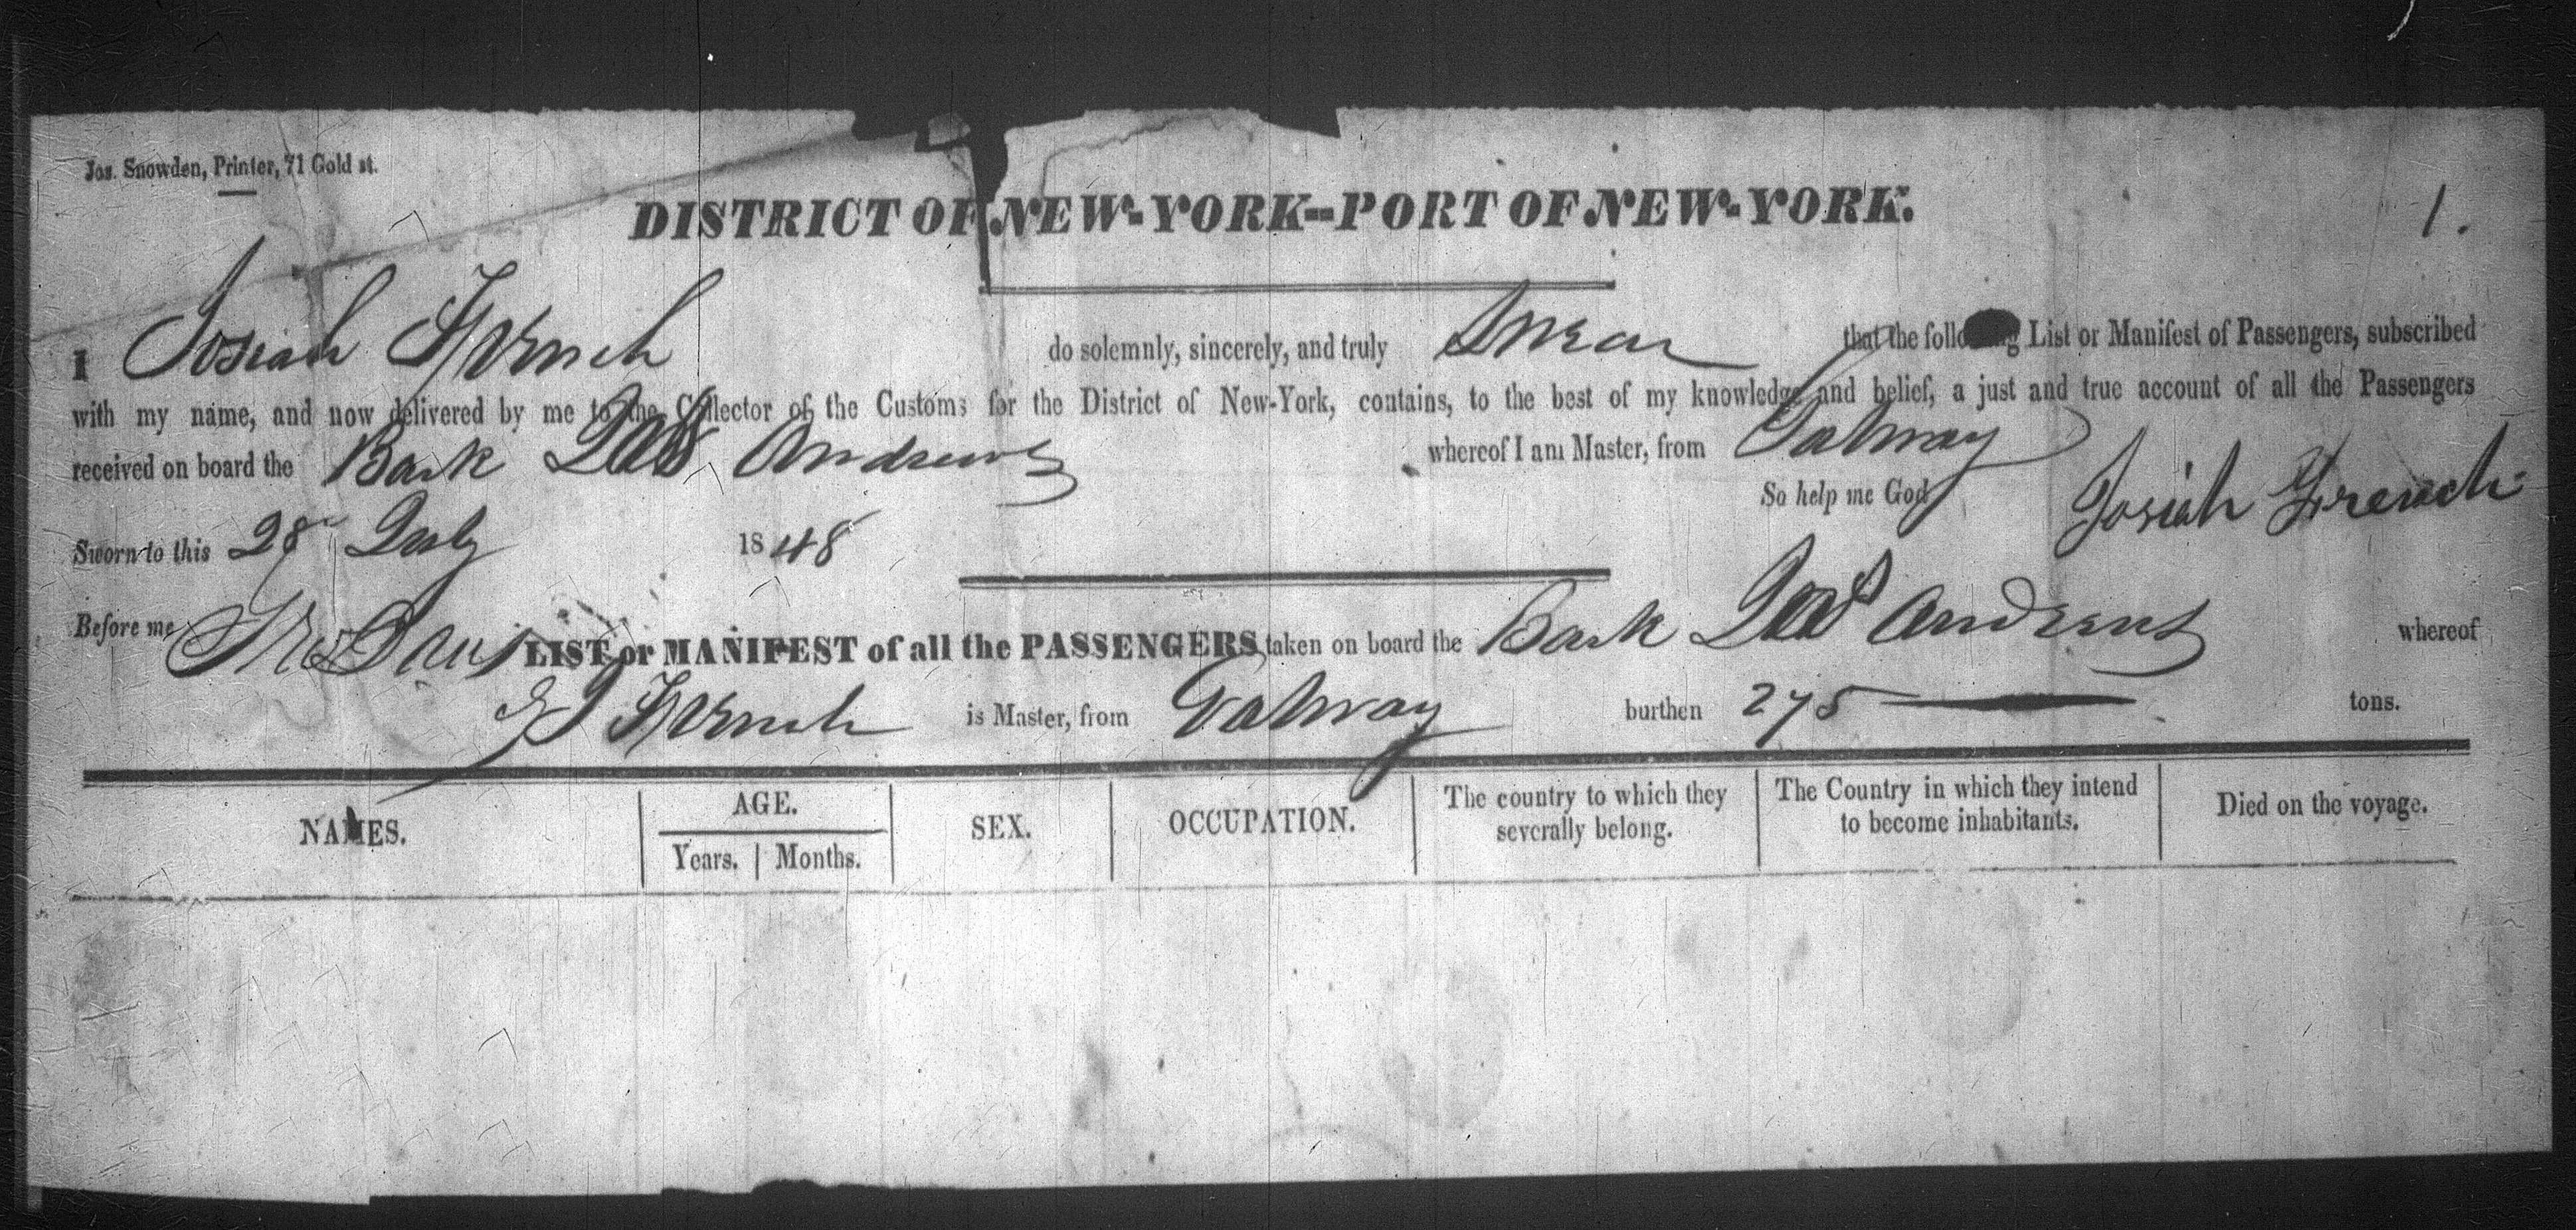 Jos. Snowden, Printer, 71 Gold st.
1.
DISTRICT OF NEW-YORK--PORT OF NEW-YORK.
I Josiah French do solemnly, sincerely, and truly Swear that the following List or Manifest of Passengers, subscribed
with my name, and now delivered by me to the Collector of the Customs for the District of New-York, contains, to the best of my knowledge and belief, a just and true account of all the Passengers
received on board the Bark Jas Andrews whereof I am Master, from Galway
So help me God Josiah French
Sworn to this 28 July 1848
Before me
LIST or MANIFEST of all the PASSENGERS taken on board the Bark Jas Andrews whereof
J French is Master, from Galway burthen 275 tons.
NAMES. AGE. Years. Months. SEX. OCCUPATION. The country to which they severally belong. The Country in which they intend to become inhabitants. Died on the voyage.